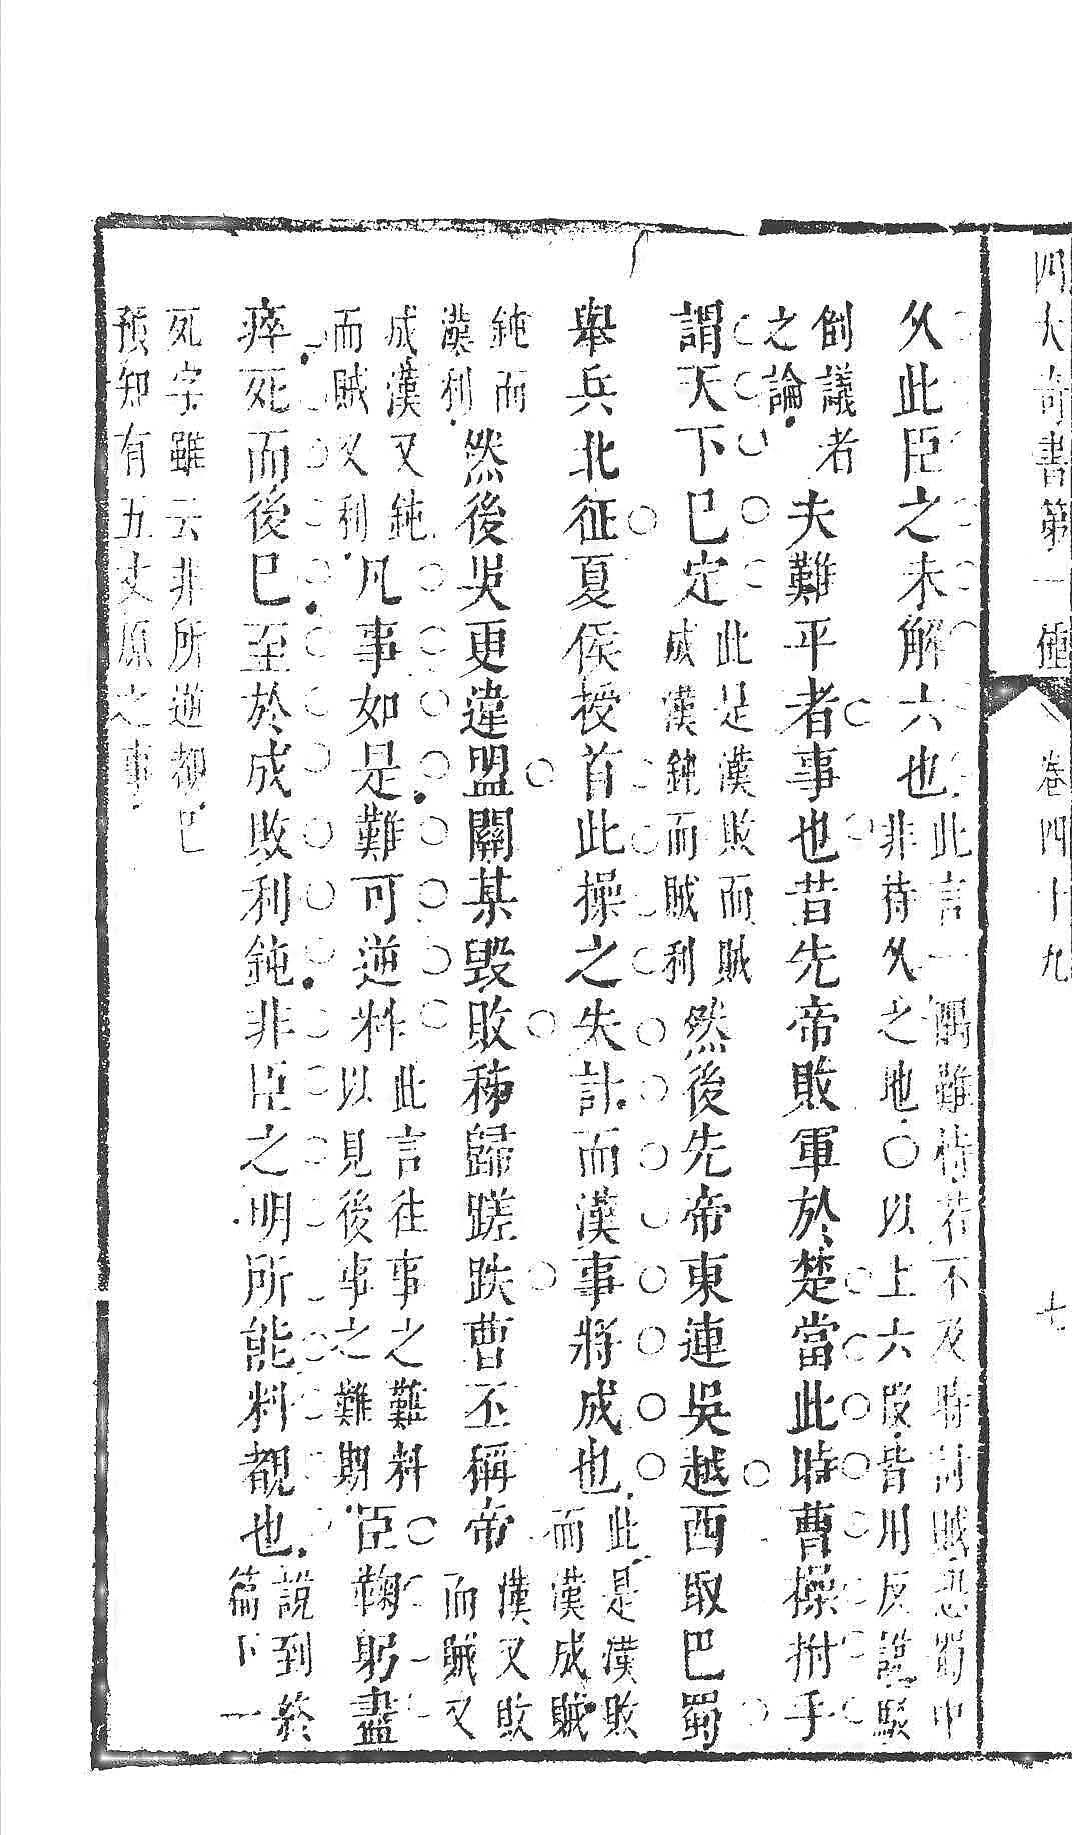 四大奇書第一種 卷四十九 七
久此臣之未解六也
此言一隅難恃若不及時討賊恐蜀中
非待久之地○以上六段皆用反說駁
創議者
之論
夫難平者事也昔先帝敗軍於楚當此時曹操拊手
謂天下已定
此是漢敗而賊
成漢鈍而賊利
然後先帝東連吳越西取巴蜀
舉兵北征夏侯授首此操之失計而漢事將成也
此是漢敗
而漢成賊
鈍而
漢利
然後吳更違盟關某毀敗秭歸蹉跌曹丕稱帝
漢又敗
而賊又
成漢又鈍
而賊又利
凡事如是難可逆料
此言往事之難料
以見後事之難期
臣鞠躬盡
瘁死而後已至於成敗利鈍非臣之明所能料覩也
說到終
篇下一
死字雖云非所逆覩已
預知有五丈原之事